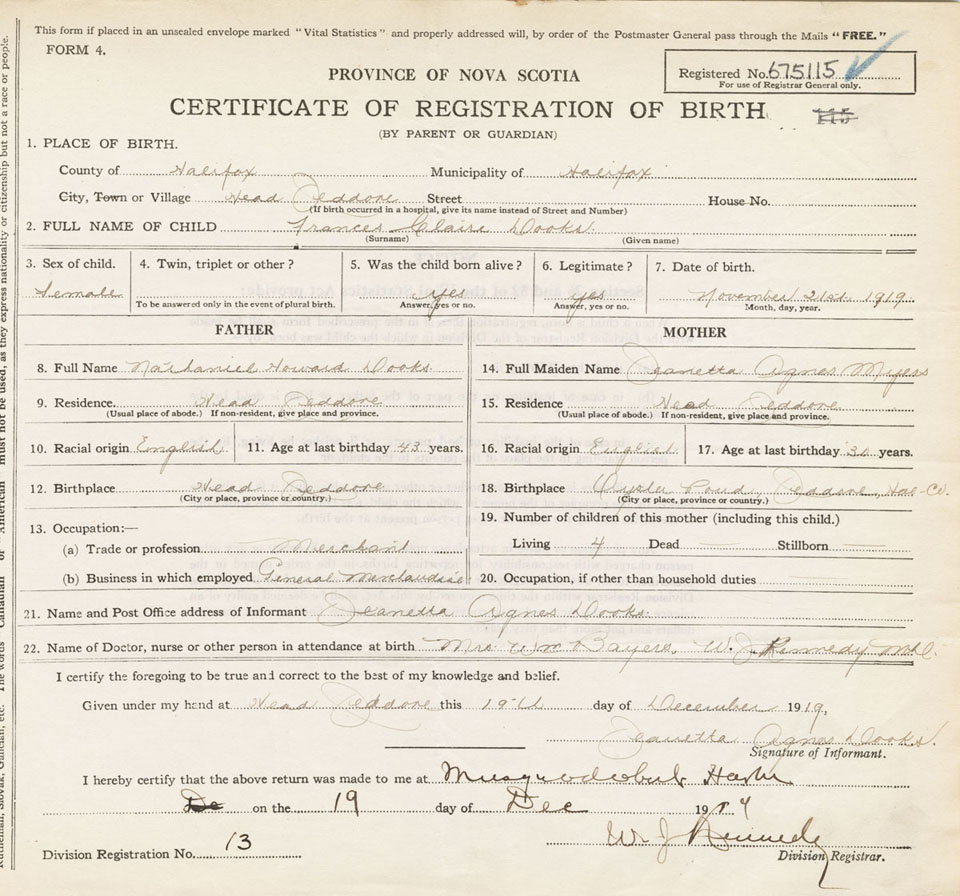 This form if placed in an unsealed envelope marked "Vital Statistics" and properly addressed will, by order of the Postmaster General pass through the Mails "FREE."
FORM 4.
Registered No. 675115
For use of Registrar General only.
PROVINCE OF NOVA SCOTIA
CERTIFICATE OF REGISTRATION OF BIRTH
(BY PARENT OR GUARDIAN)
1. PLACE OF BIRTH.
County of Halifax Municipality of Halifax
City, Town or Village Head Jeddore Street House No.
(If birth occurred in a hospital, give its name instead of Street and Number)
2. FULL NAME OF CHILD Frances Claire Dooks
(Surname) (Given name)
3. Sex of child. 4. Twin, triplet or other? 5. Was the child born alive? 6. Legitimate? 7. Date of birth.
Female Yes Yes November 21st 1919
To be answered only in the event of plural birth. Answer, yes or no. Answer, yes or no. Month, day, year.
FATHER MOTHER
8. Full Name Nathaniel Howard Dooks 14. Full Maiden Name Jeanetta Agnes Myers
9. Residence. Head Jeddore 15. Residence Head Jeddore
(Usual place of abode.) If non-resident, give place and province. (Usual place of abode.) If non-resident, give place and province.
10. Racial origin English 11. Age at last birthday 43 years. 16. Racial origin English 17. Age at last birthday years.
12. Birthplace Head Jeddore 18. Birthplace Oyster Pond, Jeddore, Hal-Co.
(City or place, province or country.) (City or place, province or country.)
13. Occupation:— 19. Number of children of this mother (including this child.)
(a) Trade or profession Merchant Living 4 Dead — Stillborn —
(b) Business in which employed General Merchandise 20. Occupation, if other than household duties
21. Name and Post Office address of Informant Jeanetta Agnes Dooks
22. Name of Doctor, nurse or other person in attendance at birth Mrs Wm Bayers, W. J. Kennedy M.D.
I certify the foregoing to be true and correct to the best of my knowledge and belief.
Given under my hand at Head Jeddore this 19th day of December 1919,
Jeanetta Agnes Dooks.
Signature of Informant.
I hereby certify that the above return was made to me at Musquodoboit Harbr
on the 19 day of Dec 19
W. J. Kennedy
Division Registration No. 13 Division Registrar.
must not be used, as they express nationality or citizenship but not a race or people.
The words "Canadian" or "American"